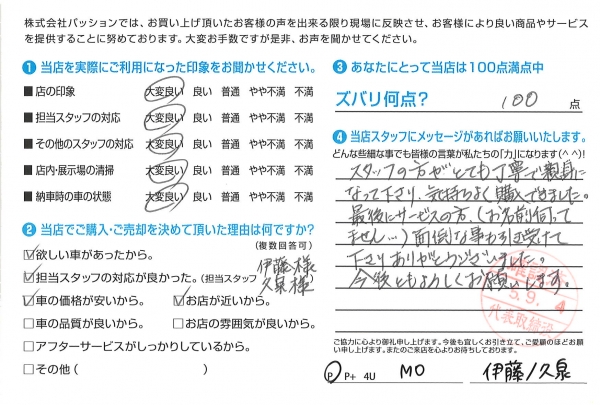 株式会社パッションでは、お買い上げ頂いたお客様の声を出来る限り現場に反映させ、お客様により良い商品やサービス
を提供することに努めております。大変お手数ですが是非、お声を聞かせてください。
❶ 当店を実際にご利用になった印象をお聞かせください。
■ 店の印象 大変良い 良い 普通 やや不満 不満
■ 担当スタッフの対応 大変良い 良い 普通 やや不満 不満
■ その他のスタッフの対応 大変良い 良い 普通 やや不満 不満
■ 店内・展示場の清掃 大変良い 良い 普通 やや不満 不満
■ 納車時の車の状態 大変良い 良い 普通 やや不満 不満
❷ 当店でご購入・ご売却を決めて頂いた理由は何ですか?
(複数回答可)
☑欲しい車があったから。
☑担当スタッフの対応が良かった。(担当スタッフ 伊藤様
久泉様)
☑車の価格が安いから。 ☑お店が近いから。
□車の品質が良いから。 □お店の雰囲気が良いから。
□アフターサービスがしっかりしているから。
□その他( )
❸ あなたにとって当店は100点満点中
ズバリ何点? 100 点
❹ 当店スタッフにメッセージがあればお願いいたします。
どんな些細な事でも皆様の言葉が私たちの「力」になります(^^)!
スタッフの方がとても丁寧で親身に
なって下さり、気持ちよく購入できました。
最後にサービスの方、(お名前伺って
ません…)面倒な事お引き受けて
下さりありがとうございました。
今後ともよろしくお願いします。
5.9.4
代表取締役
ご協力に心より御礼申し上げます。今後も宜しくお引き立て、ご愛顧のほどお願
い申し上げます。またのご来店を心よりお待ちしております。
P P+ 4U MO 伊藤/久泉